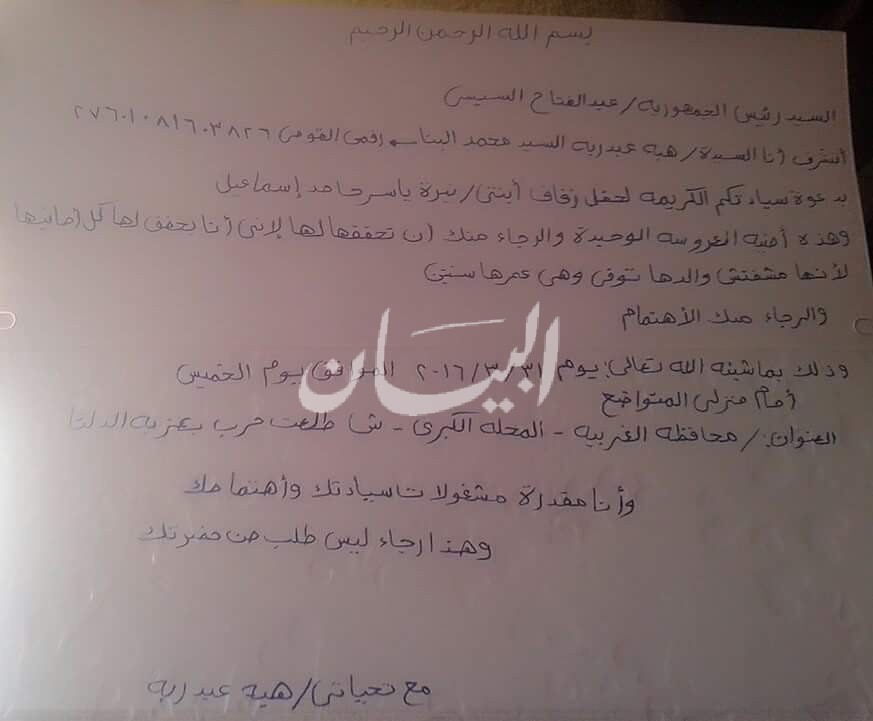 بسم الله الرحمن الرحيم
السيد رئيس الجمهوريه / عبدالفتاح السيسى
أتشرف أنا السيدة / هبه عبدربه السيد محمد البنا رقمى القومى ٢٧٦٠١٠٨١٦٠٣٨٢٦
بدعوة سيادتكم الكريمه لحفل زفاف أبنتى / نيرة ياسر حامد إسماعيل
وهذه أمنيه العروسه الوحيدة والرجاء منك أن تحققها لها لإنى أنا بحقق لها كل أمانيها
لأنها مشفتش والدها توفى وهى عمرها سنتين
والرجاء منك الأهتمام
وذلك بمشيئه الله تعالى: يوم ٢٠١٦/٣/٣١ الموافق يوم الخميس
أمام منزلى المتواضع
العنوان: / محافظه الغربيه - المحله الكبرى - ش طلعت حرب بعزبه الدلتا
وأنا مقدرة مشغولات سيادتك وأهتمامك
وهذا رجاء ليس طلب من حضرتك
مع تحياتى / هبه عبدربه
البيان